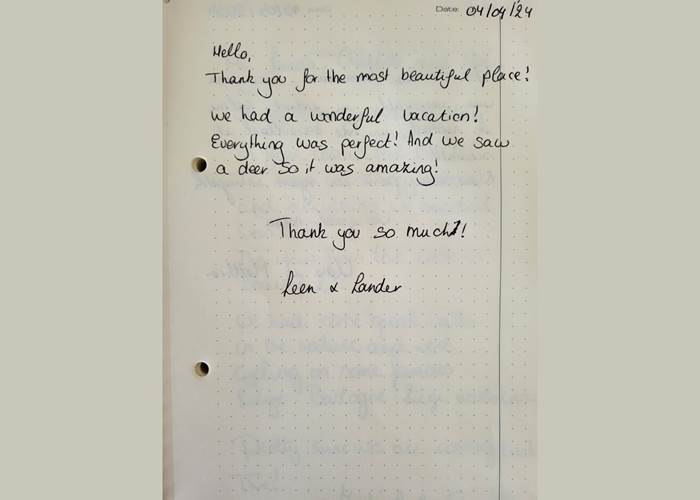 Date: 04/04/24
Hello,
Thank you for the most beautiful place!
we had a wonderful vacation!
Everything was perfect! And we saw
a deer so it was amazing!
Thank you so much!!
Leen & Lander